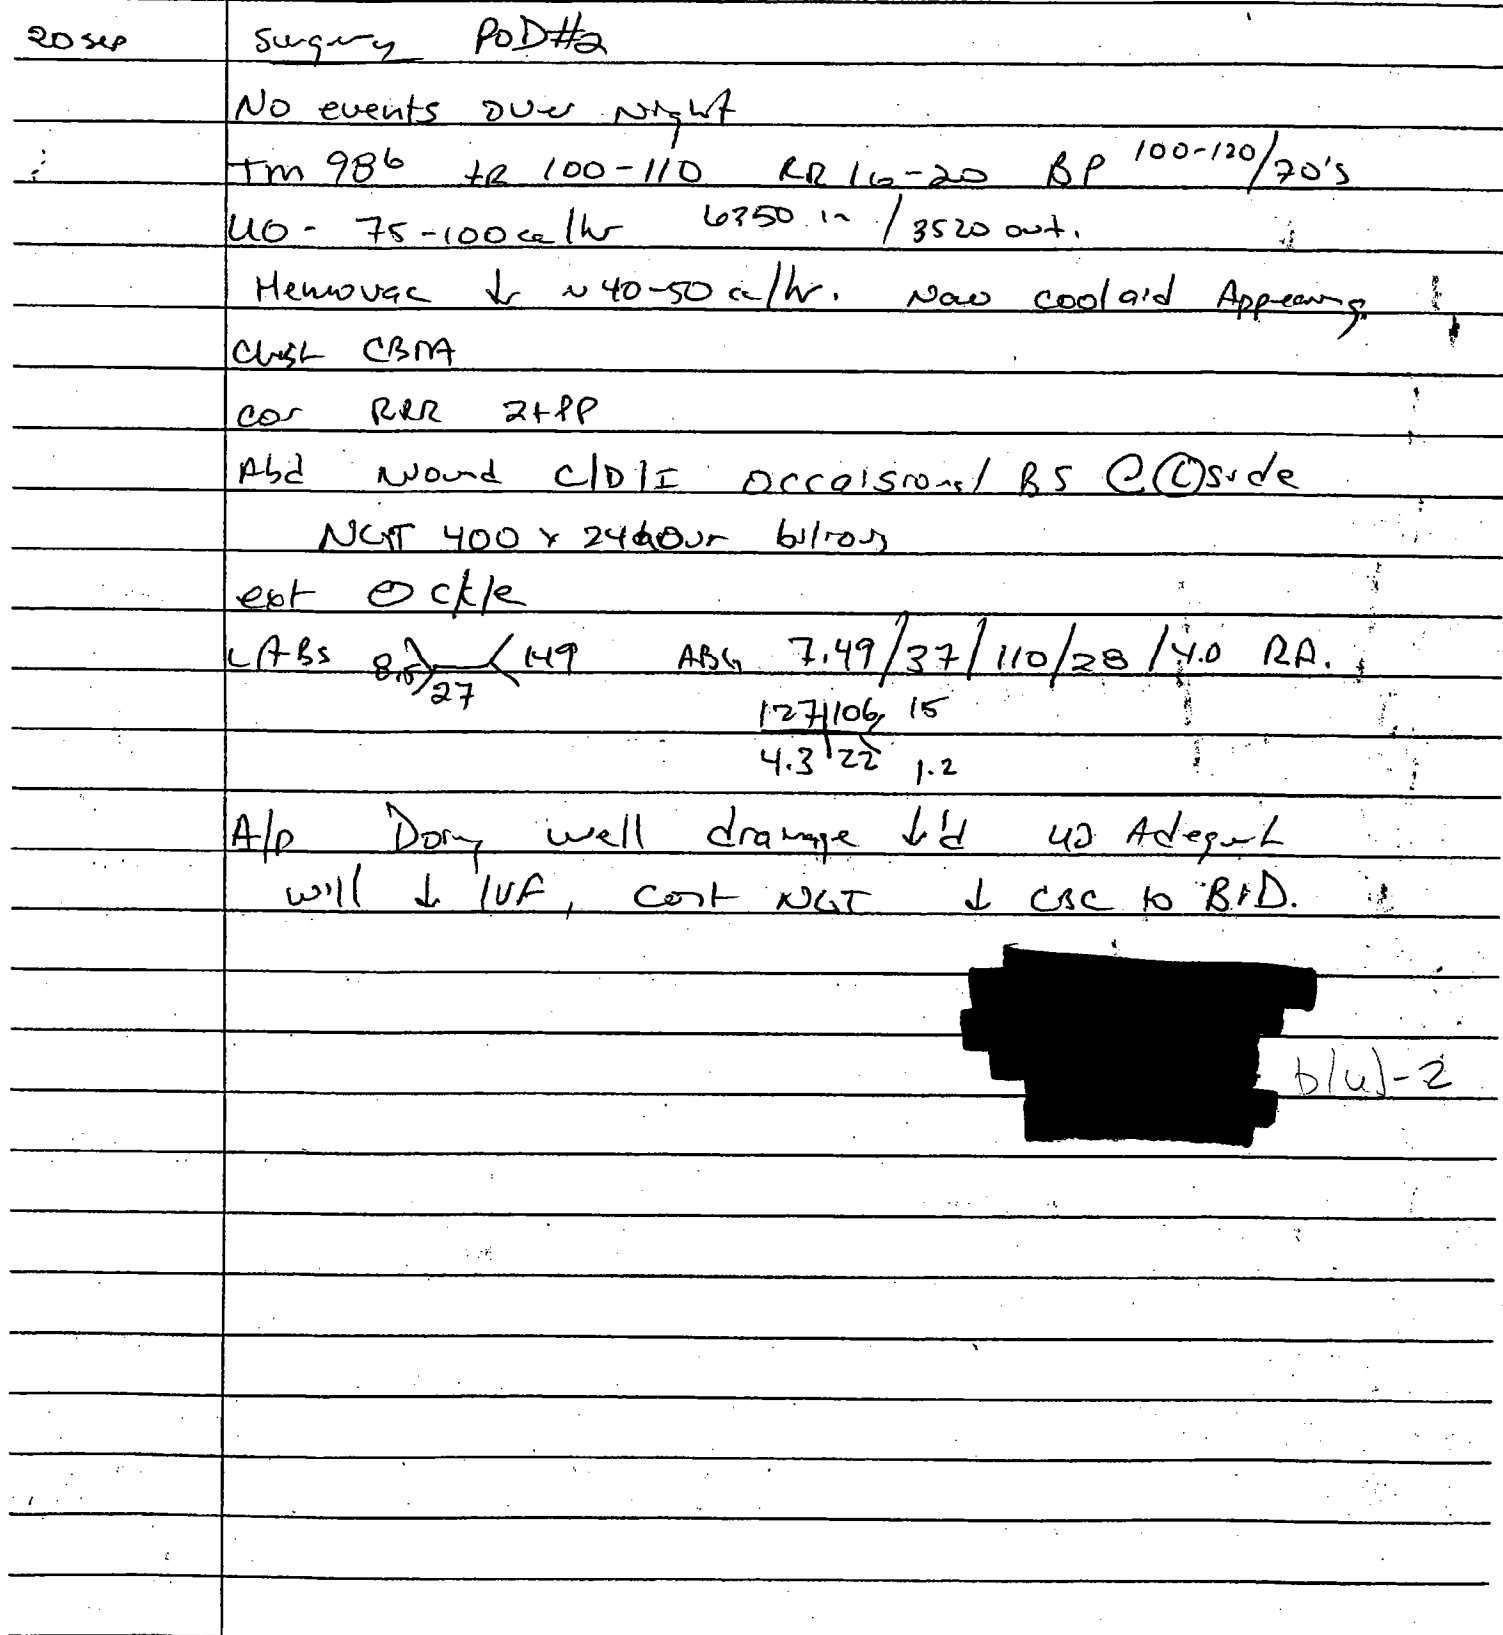 20 sep Surgery POD#2
No events over night
Tm 98⁶ HR 100-110 RR 16-20 BP 100-120/70's
UO - 75-100 cc/hr 6350 in / 3520 out.
Hemovac ↓ ~ 40-50 cc/hr. Now coolaid Appearing
Chest CBTA
cor RRR 2+PP
Abd wound C/D/I occaisional BS @ Ⓛ side
NGT 400 x 24 hour bilious
ext ⊖ c/c/e
LABs 8.5 149 ABG 7.49/37/110/28/4.0 RA.
27
127 106 15
4.3 22 1.2
A/P Doing well drainage ↓'d UO Adequat
will ↓ IVF, cont NGT ↓ CBC to BID.
b(6)-2